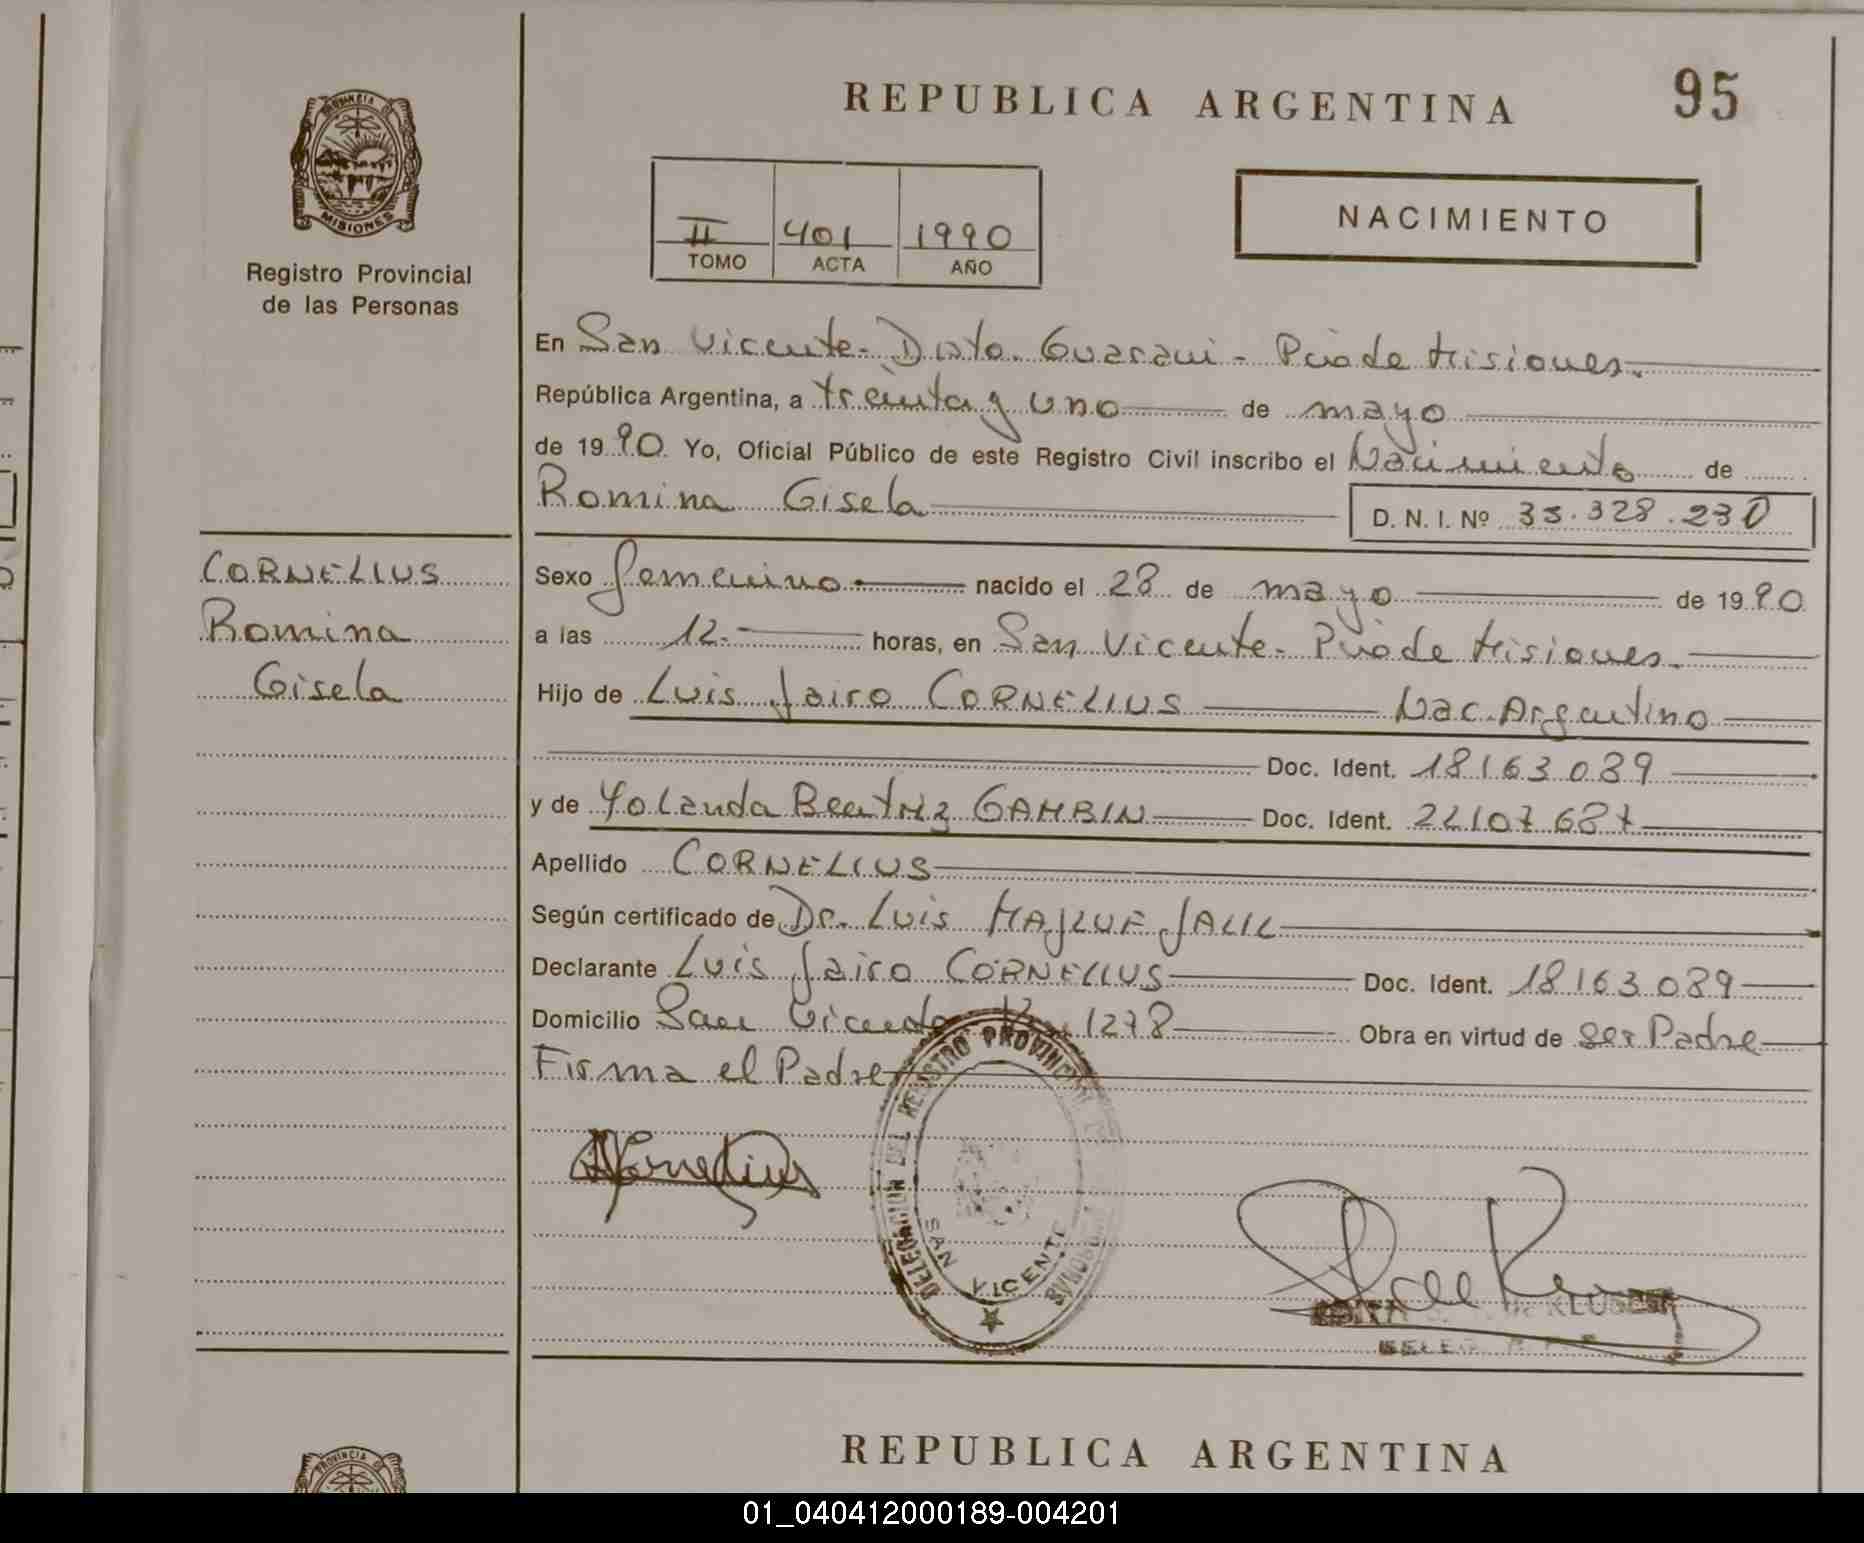 REPUBLICA ARGENTINA
95
PROVINCIA DE
MISIONES
Registro Provincial
de las Personas
II 401 1990
TOMO ACTA AÑO
NACIMIENTO
En San Vicente - Dpto. Guarani - Pcia de Misiones.
República Argentina, a treinta y uno de mayo
de 1990 Yo, Oficial Público de este Registro Civil inscribo el Nacimiento de
Romina Gisela D. N. I. Nº 35.328.230
CORNELIUS
Romina
Gisela
Sexo femenino nacido el 28 de mayo de 1990
a las 12.- horas, en San Vicente - Pcia de Misiones.
Hijo de Luis Jairo CORNELIUS Nac. Argentino
Doc. Ident. 18163089
y de Yolanda Beatriz GAMBIN Doc. Ident. 22107687
Apellido CORNELIUS
Según certificado de Dr. Luis JALIL
Declarante Luis Jairo CORNELIUS Doc. Ident. 18163089
Domicilio San Vicente 1278 Obra en virtud de ser Padre
Firma el Padre
DELEGACION DEL REGISTRO PROVINCIAL
SAN VICENTE
REPUBLICA ARGENTINA
PROVINCIA DE
01_040412000189-004201